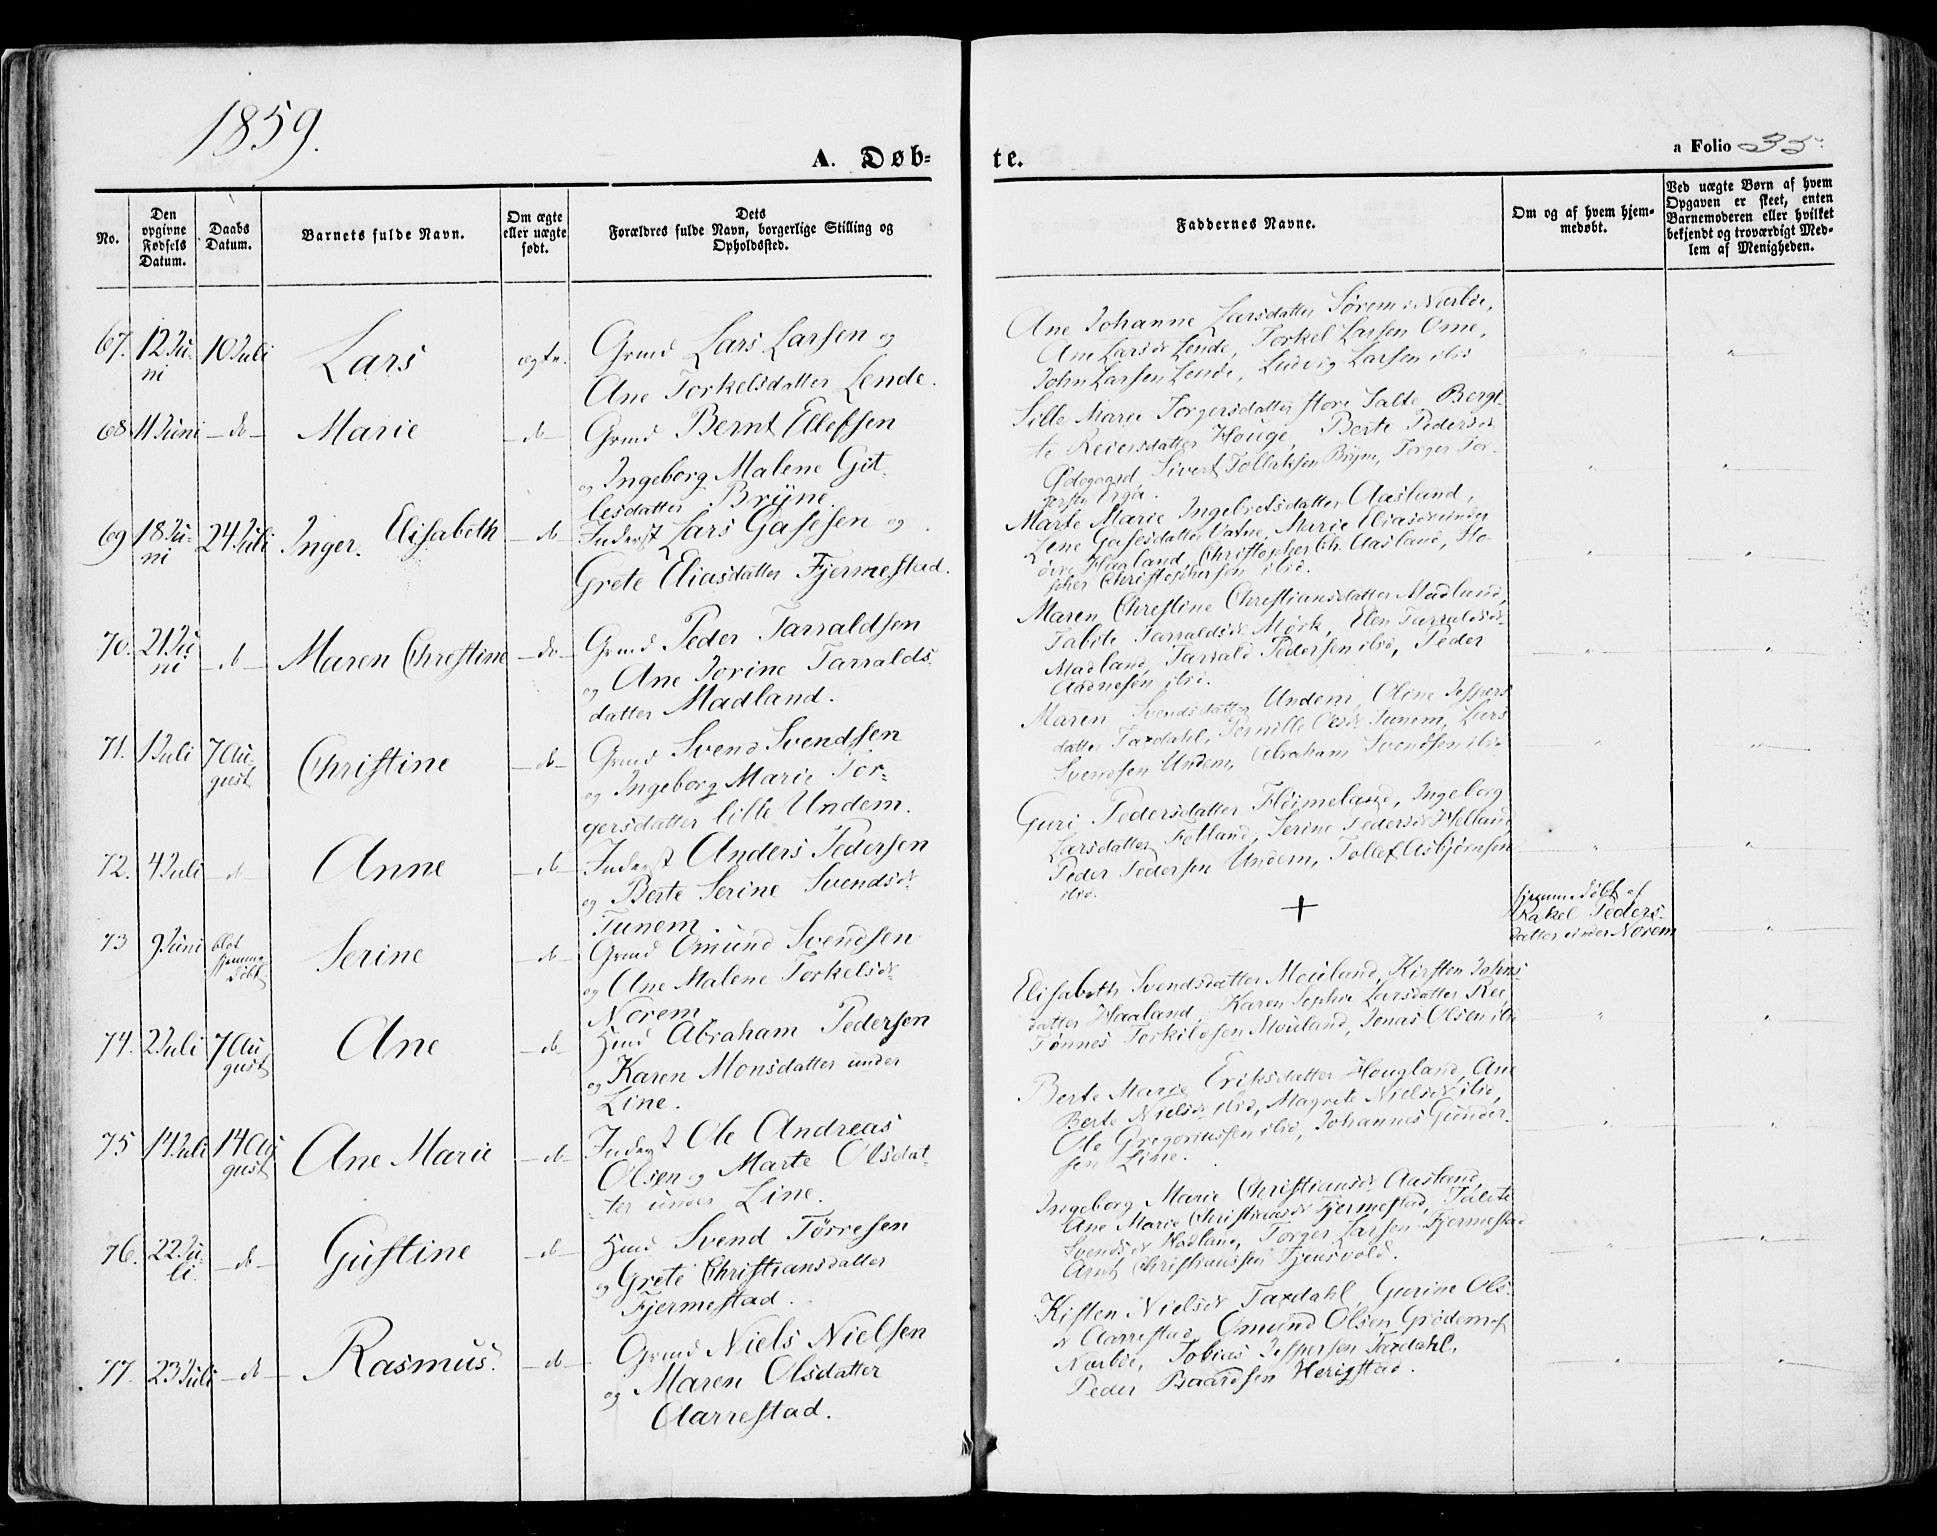 1859.
A. Døb-
te.
a Folio 35.
No.
Den
opgivne
Fødsels
Datum.
Daabs
Datum.
Barnets fulde Navn.
Om ægte
eller uægte
født.
Dets
Forældres fulde Navn, borgerlige Stilling og
Opholdssted.
Faddernes Navne.
Om og af hvem hjem-
medøbt.
Ved uægte Børn af hvem
Opgaven er skeet, enten
Barnemoderen eller hvilket
bekjendt og troværdigt Med-
lem af Menigheden.
67. 12 Ju-
ni
10 Juli
Lars
ægte.
Grmd Lars Larsen og
Ane Torkelsdatter Lende.
Ane Johanne Larsdatter Sørem i Nærbøe,
Ane Larsdr Lende, Torkel Larsen Ome,
John Larsen Lende, Ludvig Larsen ibid
68. 11 Juni
-do-
Marie
-do-
Grmd Bernt Ellefsen
og Ingeborg Malene Git-
lesdatter Bryne.
Sille Marie Torgersdatter store Salte, Bergt-
te Reiersdatter Houge, Berte Pedersdr
Ødegaard, Sivert Tollaksen Bryne, Torger Tor-
gersen Erga.
69 18 Ju-
ni
24 Juli
Inger Elisabeth
-do-
Inderst Lars Gasesen og
Grete Eliasdatter Fjermestad.
Marte Marie Ingebretsdatter Aasland,
Lene Gasesdatter Vatne, Marie Eliasdr under
øvre Haaland, Christopher Ch. Aasland, Sto-
pher Christophersen ibid.
70. 21 Ju
ni
-do-
Maren Christine
-do-
Grmd Peder Tarraldsen
og Ane Jorine Tarralds-
datter Madland.
Maren Christine Christiansdatter Madland,
Tabite Tarraldsdr Mørk, Elen Tarraldsdr
Madland, Tarrald Pedersen ibid, Peder
Aadnesen ibid.
71. 1 Juli
7 Au-
gust
Christine
-do-
Grmd Svend Svendsen
og Ingeborg Marie Tor-
gersdatter lille Undem.
Maren Svendsdatter Undem, Oline Jespers
datter Taxdahl, Pernille Olsdr Tunem, Lars
Svendsen Undem, Abraham Svendsen ibid
72. 4 Juli
do
Anne
-do-
Inderst Anders Pedersen
og Berte Serine Svendsdr
Tunem.
Guri Pedersdatter Fløimeland, Ingeborg
Larsdatter Fotland, Serine Pedersdr Helland
Peder Pedersen Undem, Tollef Asbjørnsen
ibid.
73 9 Juni
blot
hjemme
døbt
Serine
-do-
Grmd Omund Svendsen
og Ane Malene Torkelsdr
Norem
+
hjemmedøbt af
Rakel Peders-
datter under Norem
74. 2 Juli
7 Au
gust
Ane
-do-
Hmd Abraham Pedersen
og Karen Monsdatter under
Line.
Elisabeth Svendsdatter Mouland, Kirsten Johns
datter Haaland, Karen Sophie Larsdatter Rei,
Tønnes Torkildsen Mouland, Jonas Olsen ibid
75 14 Juli
14 Au
gust
Ane Marie
-do-
Inderst Ole Andreas
Olsen og Marte Olsdat-
ter under Line.
Berte Marie Eriksdatter Hougland, Ane
Berte Nielsdr ibid, Magrete Nielsdr ibid,
Ole Gregoriussen ibid, Johannes Gunder-
sen Line.
76. 22 Ju-
li.
-do-
Gustine
-do-
Hmd Svend Tørresen
og Grete Christiansdatter
Fjermestad.
Ingeborg Marie Christiansdr Aasland,
Ane Marie Christiansdr Fjermestad, Tabite
Svendsdr Hadland, Torger Larsen Fjermestad
Arnt Christianssen Tjensvold.
77. 23 Juli
-do-
Rasmus.
-do-
Grmd Niels Nielsen
og Maren Olsdatter
Aarrestad.
Kisten Nielsdr Taxdahl, Gurine Ols-
dr Aarrestad, Omund Olsen Grødem af
Nærbøe, Tobias Jespersen Taxdahl,
Peder Baardsen Herigstad.